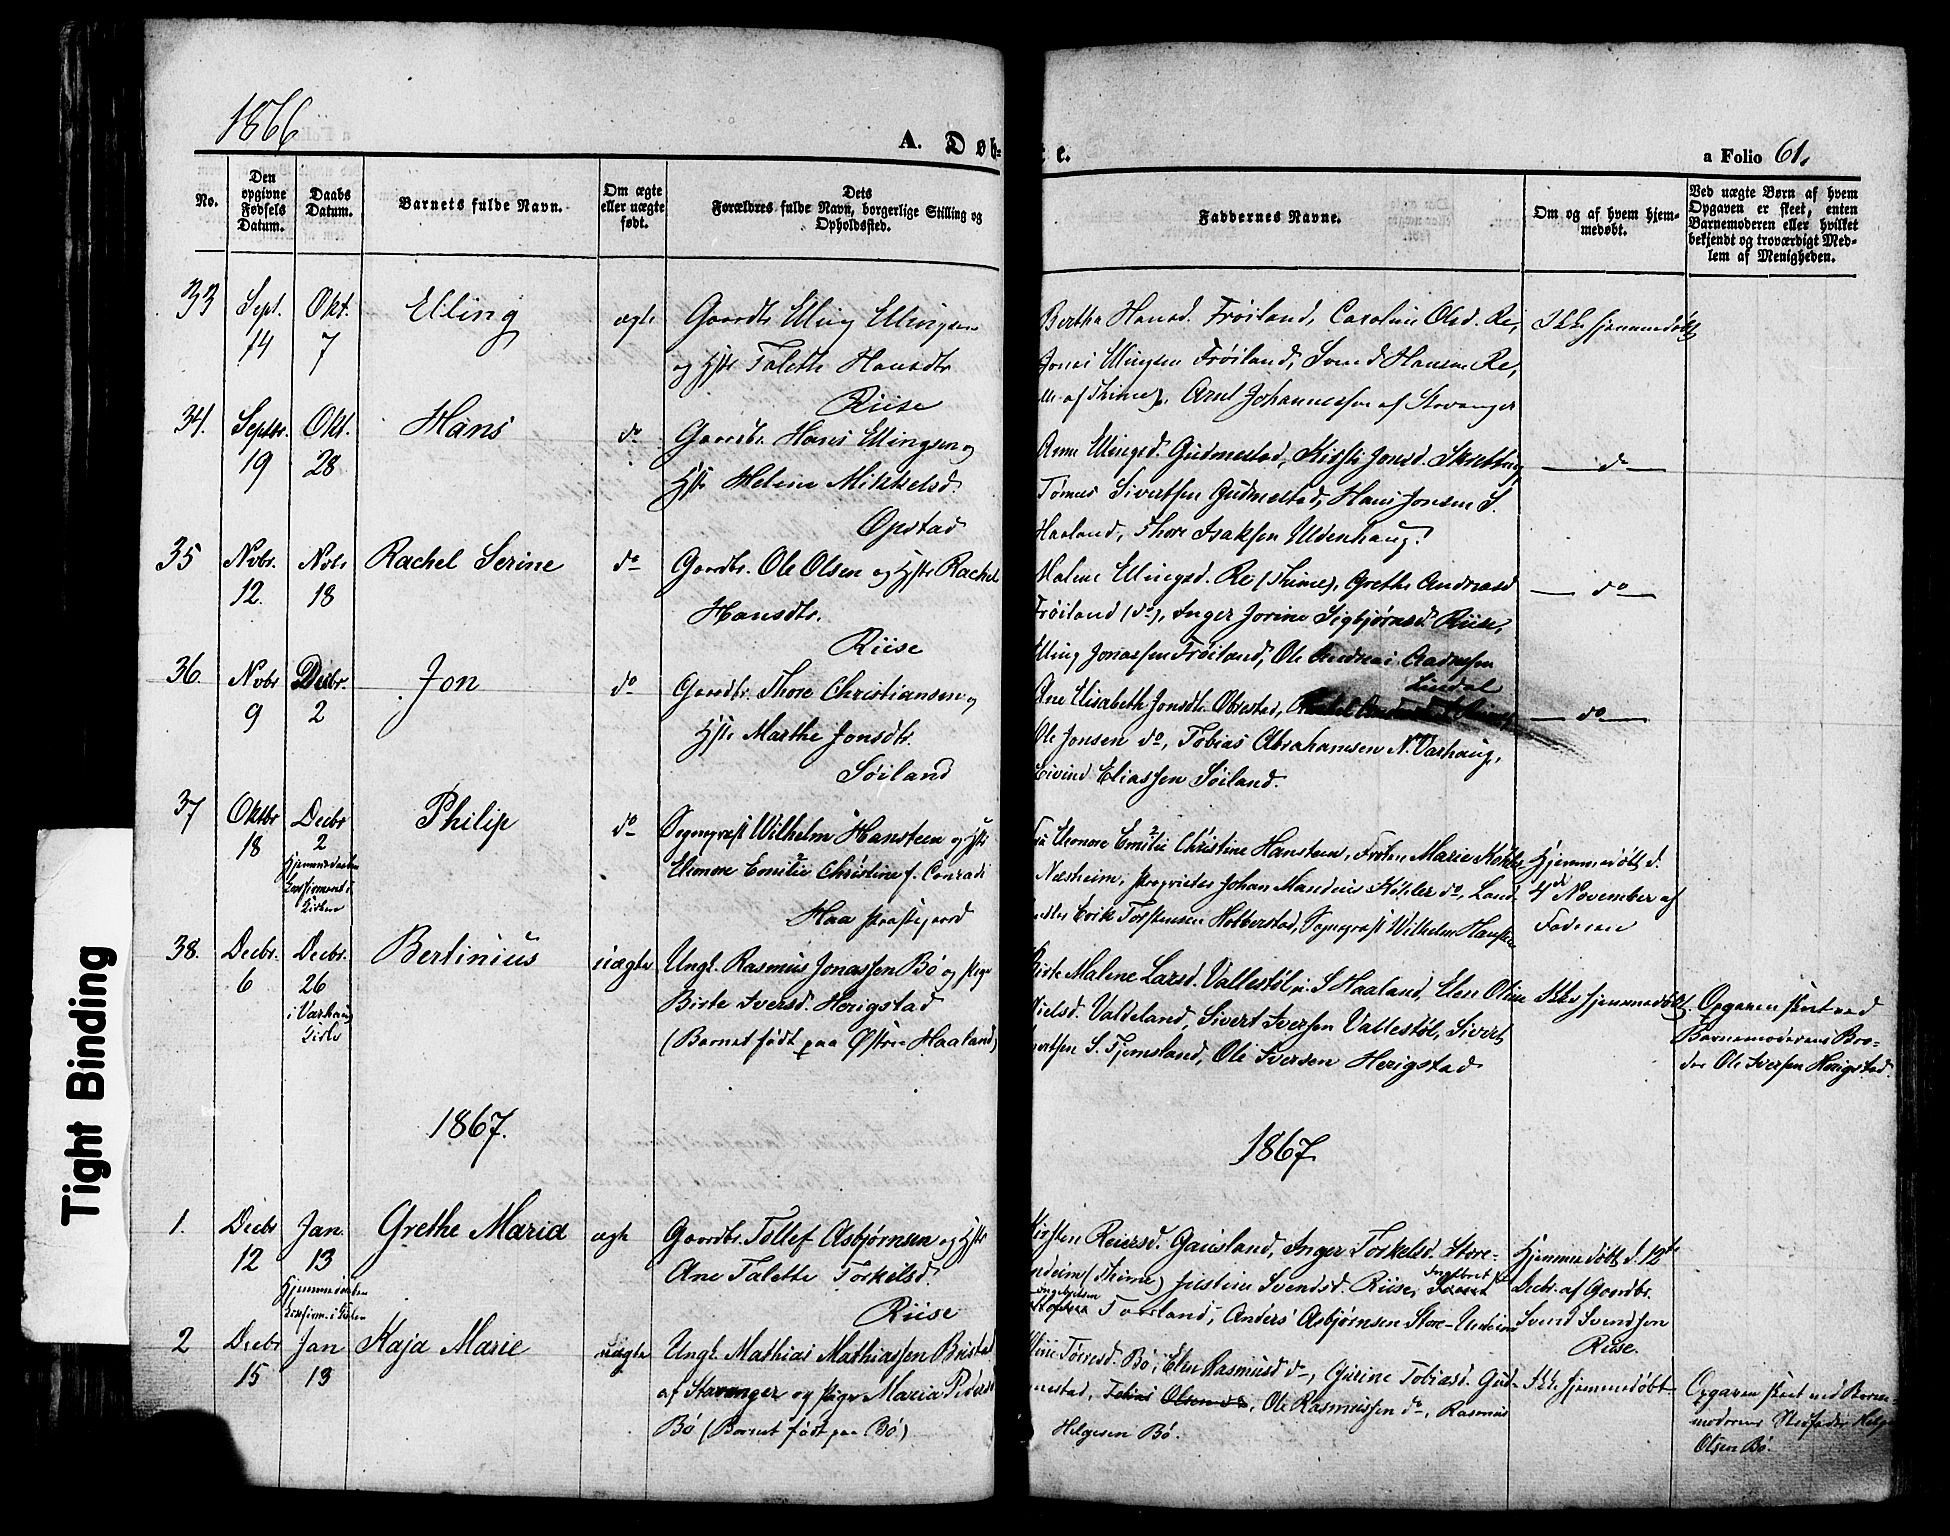 1866
A. Døb-
te.
a Folio 61.
No.
Den opgivne Fødsels Datum.
Daabs Datum.
Barnets fulde Navn.
Om ægte eller uægte født.
Dets Forældres fulde Navn, borgerlige Stilling og Opholdssted.
Faddernes Navne.
Om og af hvem hjemmedøbt.
Ved uægte Børn af hvem Opgaven er skeet, enten Barnemoderen eller hvilket bekjendt og troværdigt Medlem af Menigheden.
33 Sept. 14 Okt. 7 Elling ægte
Gaardbr. Elling Ellingsen
og Hstr Talette Hansdtr
Riise
Bertha Hansd. Frøiland, Caroline Olsd. Re,
Jonas Ellingsen Frøiland, Svend Hansen Re,
af Thime, Arnt Johannessen af Stavanger
Ikke hjemmedøbt
34. Septbr. 19 Okt. 28 Hans do
Gaardbr. Hans Ellingsen og
Hstr Helene Mikkelsd.
Opstad
Anne Ellingsd. Gudmestad, Kirsti Jonsd. Skretting,
Tønnes Sivertsen Gudmestad, Hans Jonsen S.
Haaland, Thore Isaksen Uldenhaug.
do
35 Novbr. 12. Nvbr 18 Rachel Serine do
Gaardbr. Ole Olsen og Hstr Rachel
Hansdtr.
Riise
Malene Ellingsd. Re (Thime), Grethe Andreasd
Frøiland (do), Inger Jorine Sigbjørnsd Riise,
Elling Jonassen Frøiland, Ole Andreas Aadnesen
Lindal
do
36. Novbr 9 Decbr. 2 Jon do
Gaardbr. Thore Christiansen og
Hstr Marthe Jonsdtr.
Søiland
Ane Elisabeth Jonsdtr. Obrestad,
Ole Jonsen do, Tobias Abrahamsen N. Varhaug,
Eivind Eliassen Søiland.
do
37 Oktbr 18 Decbr 2 Philip do
Hjemmedaaben
Confirmeret i
Kirken
Sogneprest Wilhelm Hansteen og Hstr
Eleonore Emilie Christine f. Conradi
Haa Præstegaard
Fru Eleonore Emilie Christine Hansteen, Frøken Marie Køhler
Næsheim, Proprietær Johan Mandius Køhler do, Land-
Eirik Torstensen Hobberstad, Sogneprest Wilhelm Hansteen
Hjemmedøbt d.
4de November af
Faderen
38. Decbr. 6 Decbr. 26 Bertinius uægte
i Varhaug
Kirke
Ungk. Rasmus Jonassen Bø og Pige
Birte Iversd. Herigstad
(Barnet født paa Østre Haaland)
Birte Malene Larsd. Vallestøl, S. Haaland, Elen Oline
Nielsd. Valdeland, Sivert Iversen Vallestøl, Sivert
S. Tjemsland, Ole Iversen Herigstad
Ikke hjemmedøbt
Opgaven skeet ved
Barnemoderens Bro-
der Ole Iversen Herigstad.
1867.
1867
1. Decbr 12 Jan. 13 Grethe Maria ægte
Hjemmedaaben
Confirm. i Kirken
Gaardbr. Tollef Asbjørnsen og Hstr
Ane Talette Torkelsd.
Riise
Kirsten Reiersd. Gausland, Inger Torkelsd. Store-
Undheim (Thime) Justine Svendsd. Riise,
Taarland, Anders Asbjørnsen Store-Undheim
Hjemmedøbt d. 12te
Decbr. af Gaardbr.
Svend Svendsen
Riise.
2 Decbr 15 Jan 13 Kaja Marie uægte
Ungk. Mathias Mathiassen Bristad
af Stavanger og Pige Maria Pedersd
Bø (Barnet født paa Bø)
Tørresd. Bø, Elen Rasmusd do, Gurine Tobiasd. Gud-
mestad, Tobias Olsen do, Ole Rasmussen do, Rasmus
Helgesen Bø.
Ikke hjemmedøbt
Opgaven skeet ved Barne-
moderens Stedfader Helge
Olsen Bø.
Tight Binding